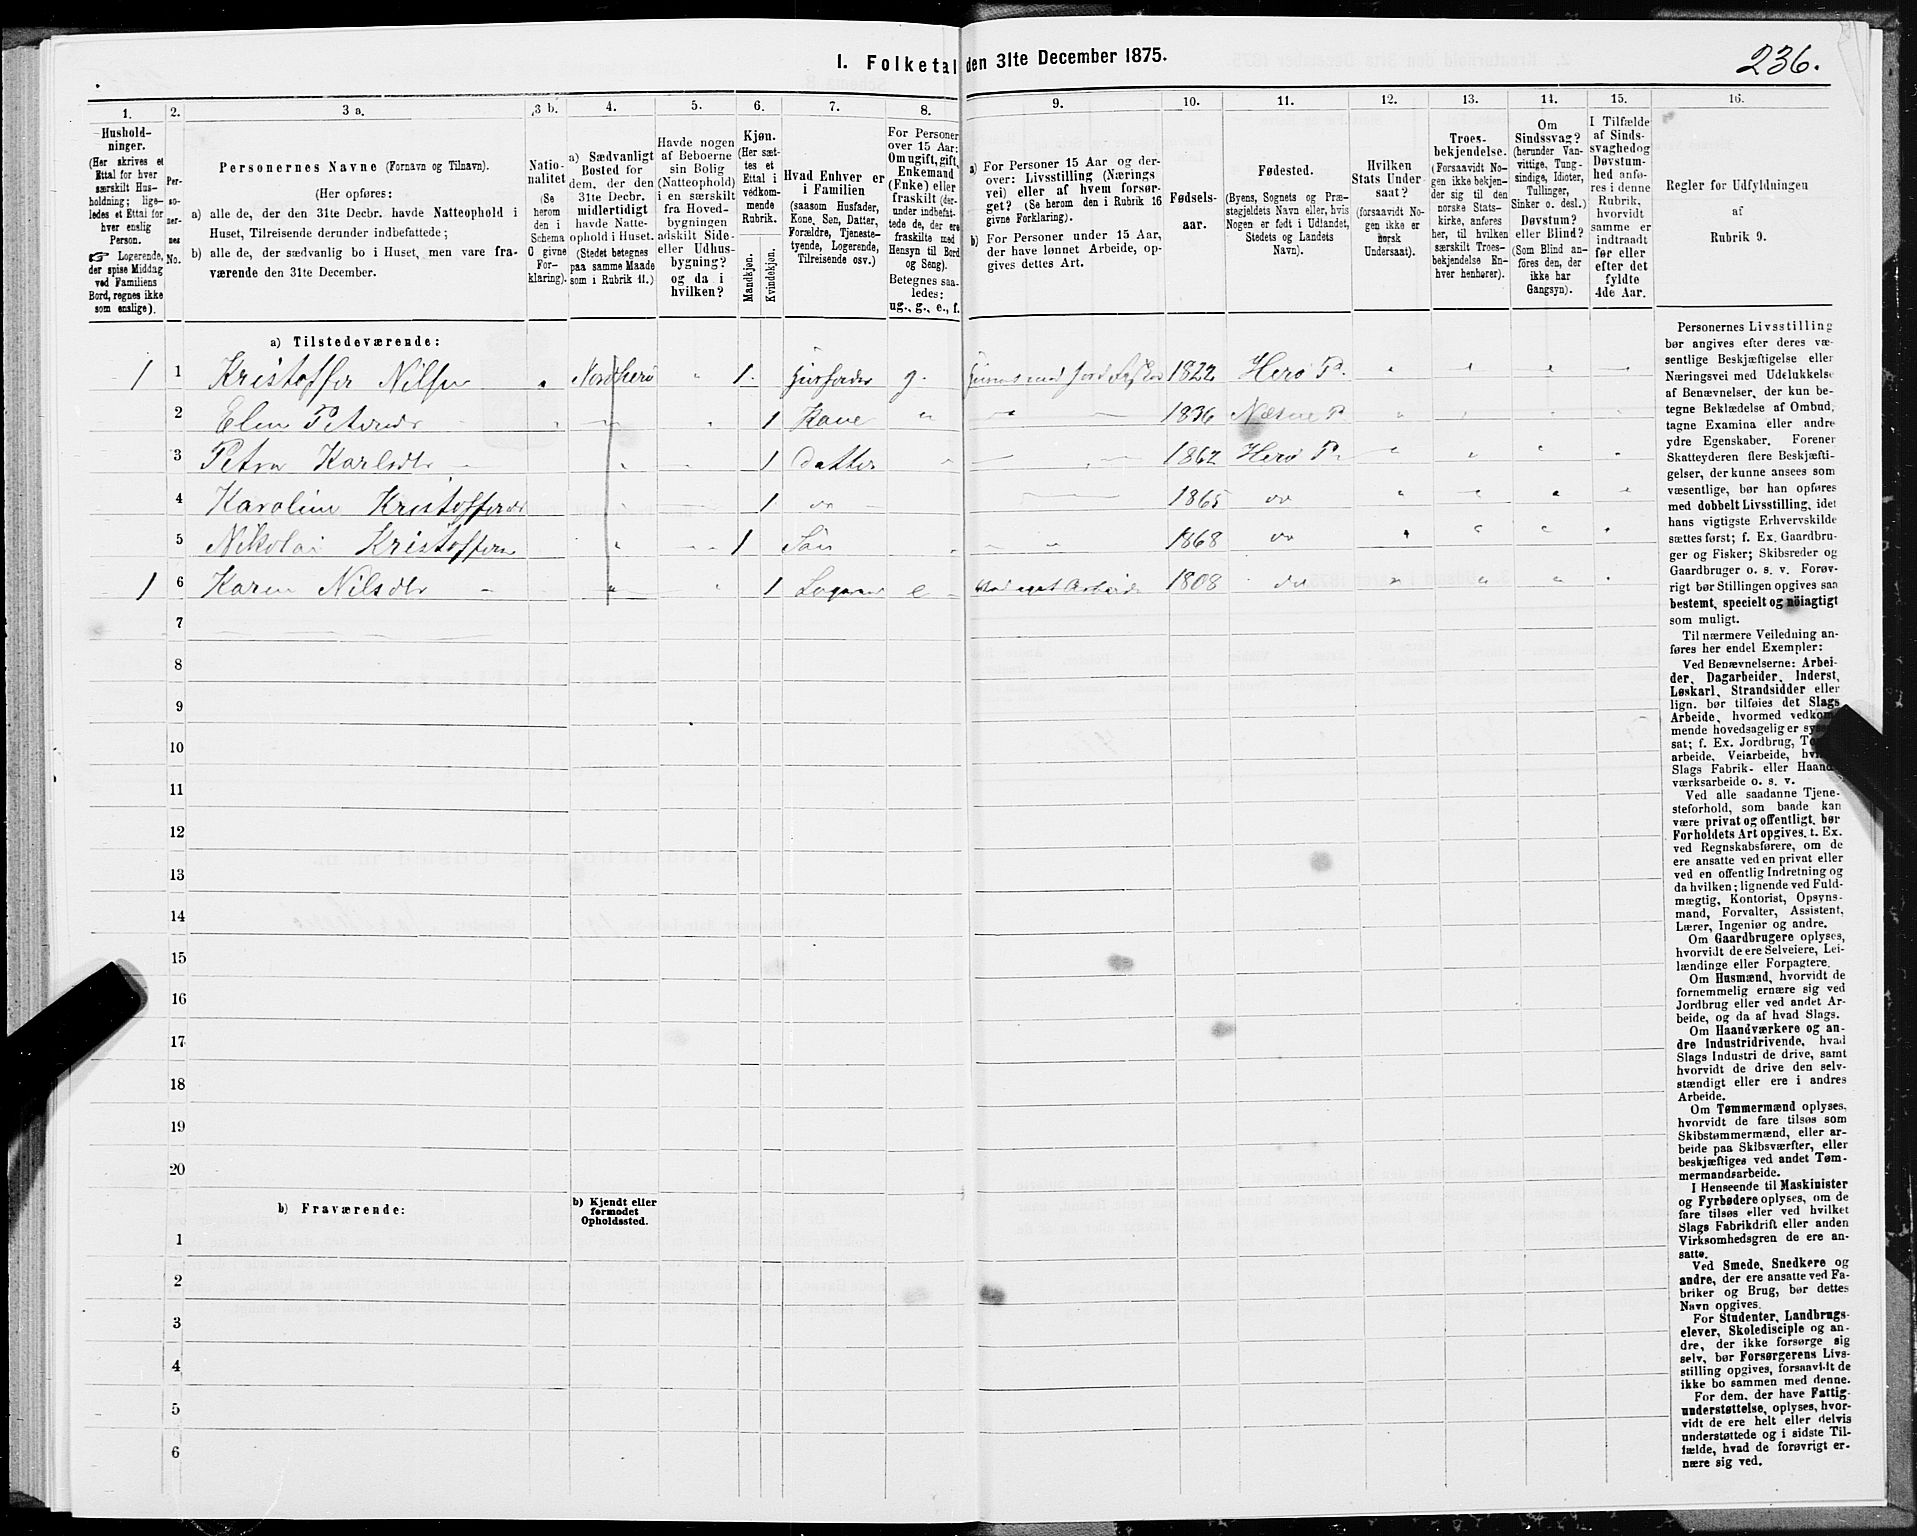 I. Folketal den 31te December 1875.
236.
1. 2. 3 a. 3 b. 4. 5. 6. 7. 8. 9. 10. 11. 12. 13. 14. 15. 16.
Hushold-
ninger.
(Her skrives et
Ettal for hver
særskilt Hus-
holdning; lige-
ledes et Ettal for
hver enslig
Person.
Logerende,
der spise Middag
ved Familiens
Bord, regnes ikke
som enslige).
Per-
so-
ner-
nes
No.
Personernes Navne (Fornavn og Tilnavn).
(Her opføres:
a) alle de, der den 31te Decbr. havde Natteophold i
Huset, Tilreisende derunder indbefattede;
b) alle de, der sædvanlig bo i Huset, men vare fra-
værende den 31te December.
Natio-
nalitet
(Se
herom
den i
Schema
O givne
For-
klaring).
a) Sædvanligt
Bosted for
dem, der den
31te Decbr.
midlertidigt
havde Natte-
ophold i Huset.
(Stedet betegnes
paa samme Maade
som i Rubrik 11.)
Havde nogen
af Beboerne
sin Bolig
(Natteophold)
i en særskilt
fra Hoved-
bygningen
adskilt Side-
eller Udhus-
bygning?
og da i
hvilken?
Kjøn.
(Her sæt-
tes et
Ettal i
vedkom-
mende
Rubrik.
Mandkjøn.
Kvindekjøn.
Hvad Enhver er
i Familien
(saasom Husfader,
Kone, Søn, Datter,
Forældre, Tjeneste-
tyende, Logerende,
Tilreisende osv.)
For Personer
over 15 Aar:
Om ugift, gift,
Enkemand
(Enke) eller
fraskilt (der-
under indbefat-
tede de, der ere
fraskilte med
Hensyn til Bord
og Seng).
Betegnes saa-
ledes:
ug., g., e., f.
a) For Personer 15 Aar og der-
over: Livsstilling (Nærings
vei) eller af hvem forsør-
get? (Se herom den i Rubrik 16
givne Forklaring).
b) For Personer under 15 Aar,
der have lønnet Arbeide, op-
gives dettes Art.
Fødsels-
aar.
Fødested.
(Byens, Sognets og Præ-
stegjeldets Navn eller, hvis
Nogen er født i Udlandet,
Stedets og Landets
Navn).
Hvilken
Stats Under-
saat?
(forsaavidt No-
gen ikke er
norsk
Undersaat).
Troes-
bekjendelse.
(Forsaavidt No-
gen ikke bekjen-
der sig til den
norske Stats-
kirke, anføres
her, til hvilken
særskilt Troes-
bekjendelse En-
hver henhører).
Om
Sindssvag?
(herunder Van-
vittige, Tung-
sindige, Idioter,
Tullinger,
Sinker o. desl.)
Døvstum?
eller Blind?
(Som Blind an-
føres den, der
ikke har
Gangsyn).
I Tilfælde
af Sinds-
svaghed og
Døvstum-
hed anfø-
res i denne
Rubrik,
hvorvidt
samme er
indtraadt
før eller
efter det
fyldte
4de Aar.
Regler for Udfyldningen
af
Rubrik 9.
a) Tilstedeværende:
1 1 Kristoffer Nilsen " Nordherø " 1. Husfader g. 1822 Herø P.
2 Elen Petersdr " 1 Kone " 1836 P
3 Petra Karlsdtr 1 Datter 1862 Herø P.
4 Karoline Kristoffersdr 1 do 1865 do
5 Nikolai Kristoffersn 1 Søn 1868 do
1 6 Karen Nilsdtr 1 Logerende e eget Arbeide 1808 do
7
8
9
10
11
12
13
14
15
16
17
18
19
20
b) Fraværende:
b) Kjendt eller
formodet
Opholdssted.
1
2
3
4
5
6
Personernes Livsstilling
bør angives efter deres væ-
sentlige Beskjæftigelse eller
Næringsvei med Udelukkelse
af Benævnelser, der kun be-
tegne Beklædelse af Ombud,
tagne Examina eller andre
ydre Egenskaber. Forener
Skatteyderen flere Beskjæfti-
gelser, der kunne ansees som
væsentlige, bør han opføres
med dobbelt Livsstilling, idet
hans vigtigste Erhvervskilde
sættes først; f. Ex. Gaardbru-
ger og Fisker; Skibsreder og
Gaardbruger o. s. v. Forøv-
rigt bør Stillingen opgives saa
bestemt, specielt og nöiagtigt
som muligt.
Til nærmere Veiledning an-
føres her endel Exempler:
Ved Benævnelserne: Arbei-
der, Dagarbeider, Inderst,
Løskarl, Strandsidder eller
lign. bør tilføies det Slags
Arbeide, hvormed vedkom-
mende hovedsagelig er syssel-
sat; f. Ex. Jordbrug,
arbeide, Veiarbeide,
Slags Fabrik- eller Haand-
værksarbeide o. s. v.
Ved alle saadanne Tjene-
steforhold, som baade kan
være privat og offentligt, bør
Forholdets Art opgives, t. Ex.
ved Regnskabsførere, om de
ere ansatte ved en privat eller
ved en offentlig Indretning og
da hvilken; lignende ved Fuld-
mægtig, Kontorist, Opsyns-
mand, Forvalter, Assistent,
Lærer, Ingeniør og andre.
Om Gaardbrugere oplyses,
hvorvidt de ere Selveiere, Lei-
lændinge eller Forpagtere.
Om Husmænd, hvorvidt de
fornemmelig ernære sig ved
Jordbrug eller ved andet Ar-
beide, og da af hvad Slags.
Om Haandværkere og an-
dre Industridrivende, hvad
Slags Industri de drive, samt
hvorvidt de drive den selv-
stændigt eller ere i andres
Arbeide.
Om Tømmermænd oplyses,
hvorvidt de fare tilsøs som
Skibstømmermænd, eller ar-
beide paa Skibsværfter, eller
beskjæftiges ved andet Tøm-
mermandsarbeide.
I Henseende til Maskinister
og Fyrbødere oplyses, om de
fare tilsøs eller ved hvilket
Slags Fabrikdrift eller anden
Virksomhedsgren de ere an-
satte.
Ved Smede, Snedkere og
andre, der ere ansatte ved Fa-
briker og Brug, bør dettes
Navn opgives.
For Studenter, Landbrugs-
elever, Skoledisciple og an-
dre, der ikke forsørge sig
selv, bør Forsørgerens Livs-
stilling opgives, forsaavidt de
ikke bo sammen med denne.
For dem, der have Fattig-
understøttelse, oplyses, hvor-
vidt de ere helt eller delvis
understøttede og i sidste Til-
fælde, hvad de forøvrigt er-
nære sig ved.